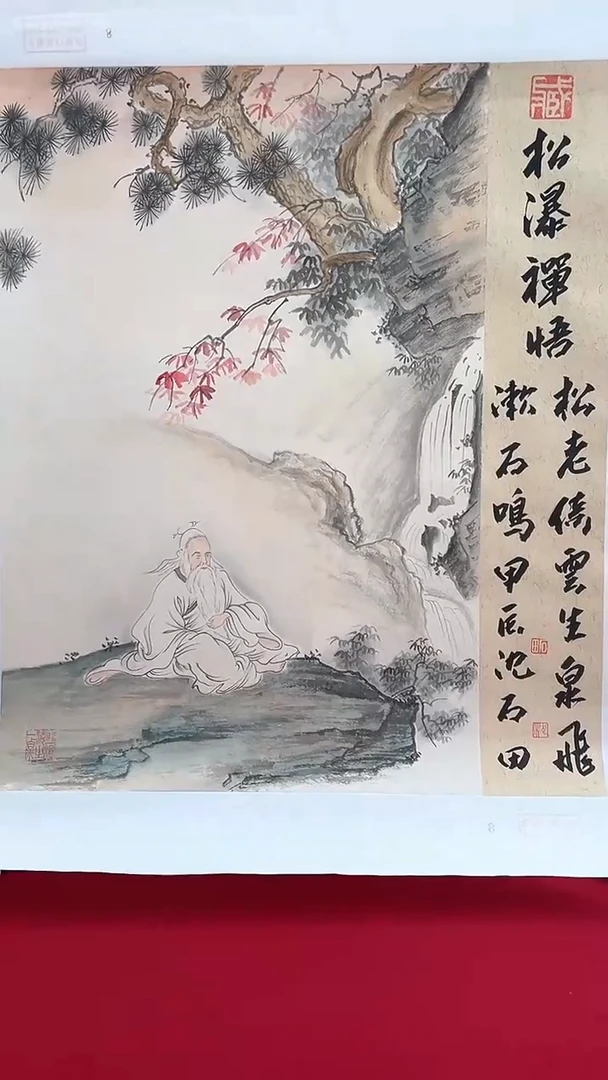 藏
松瀑禪悟
松老倚雲生泉飛
漱石鳴甲辰沈石田
8
8